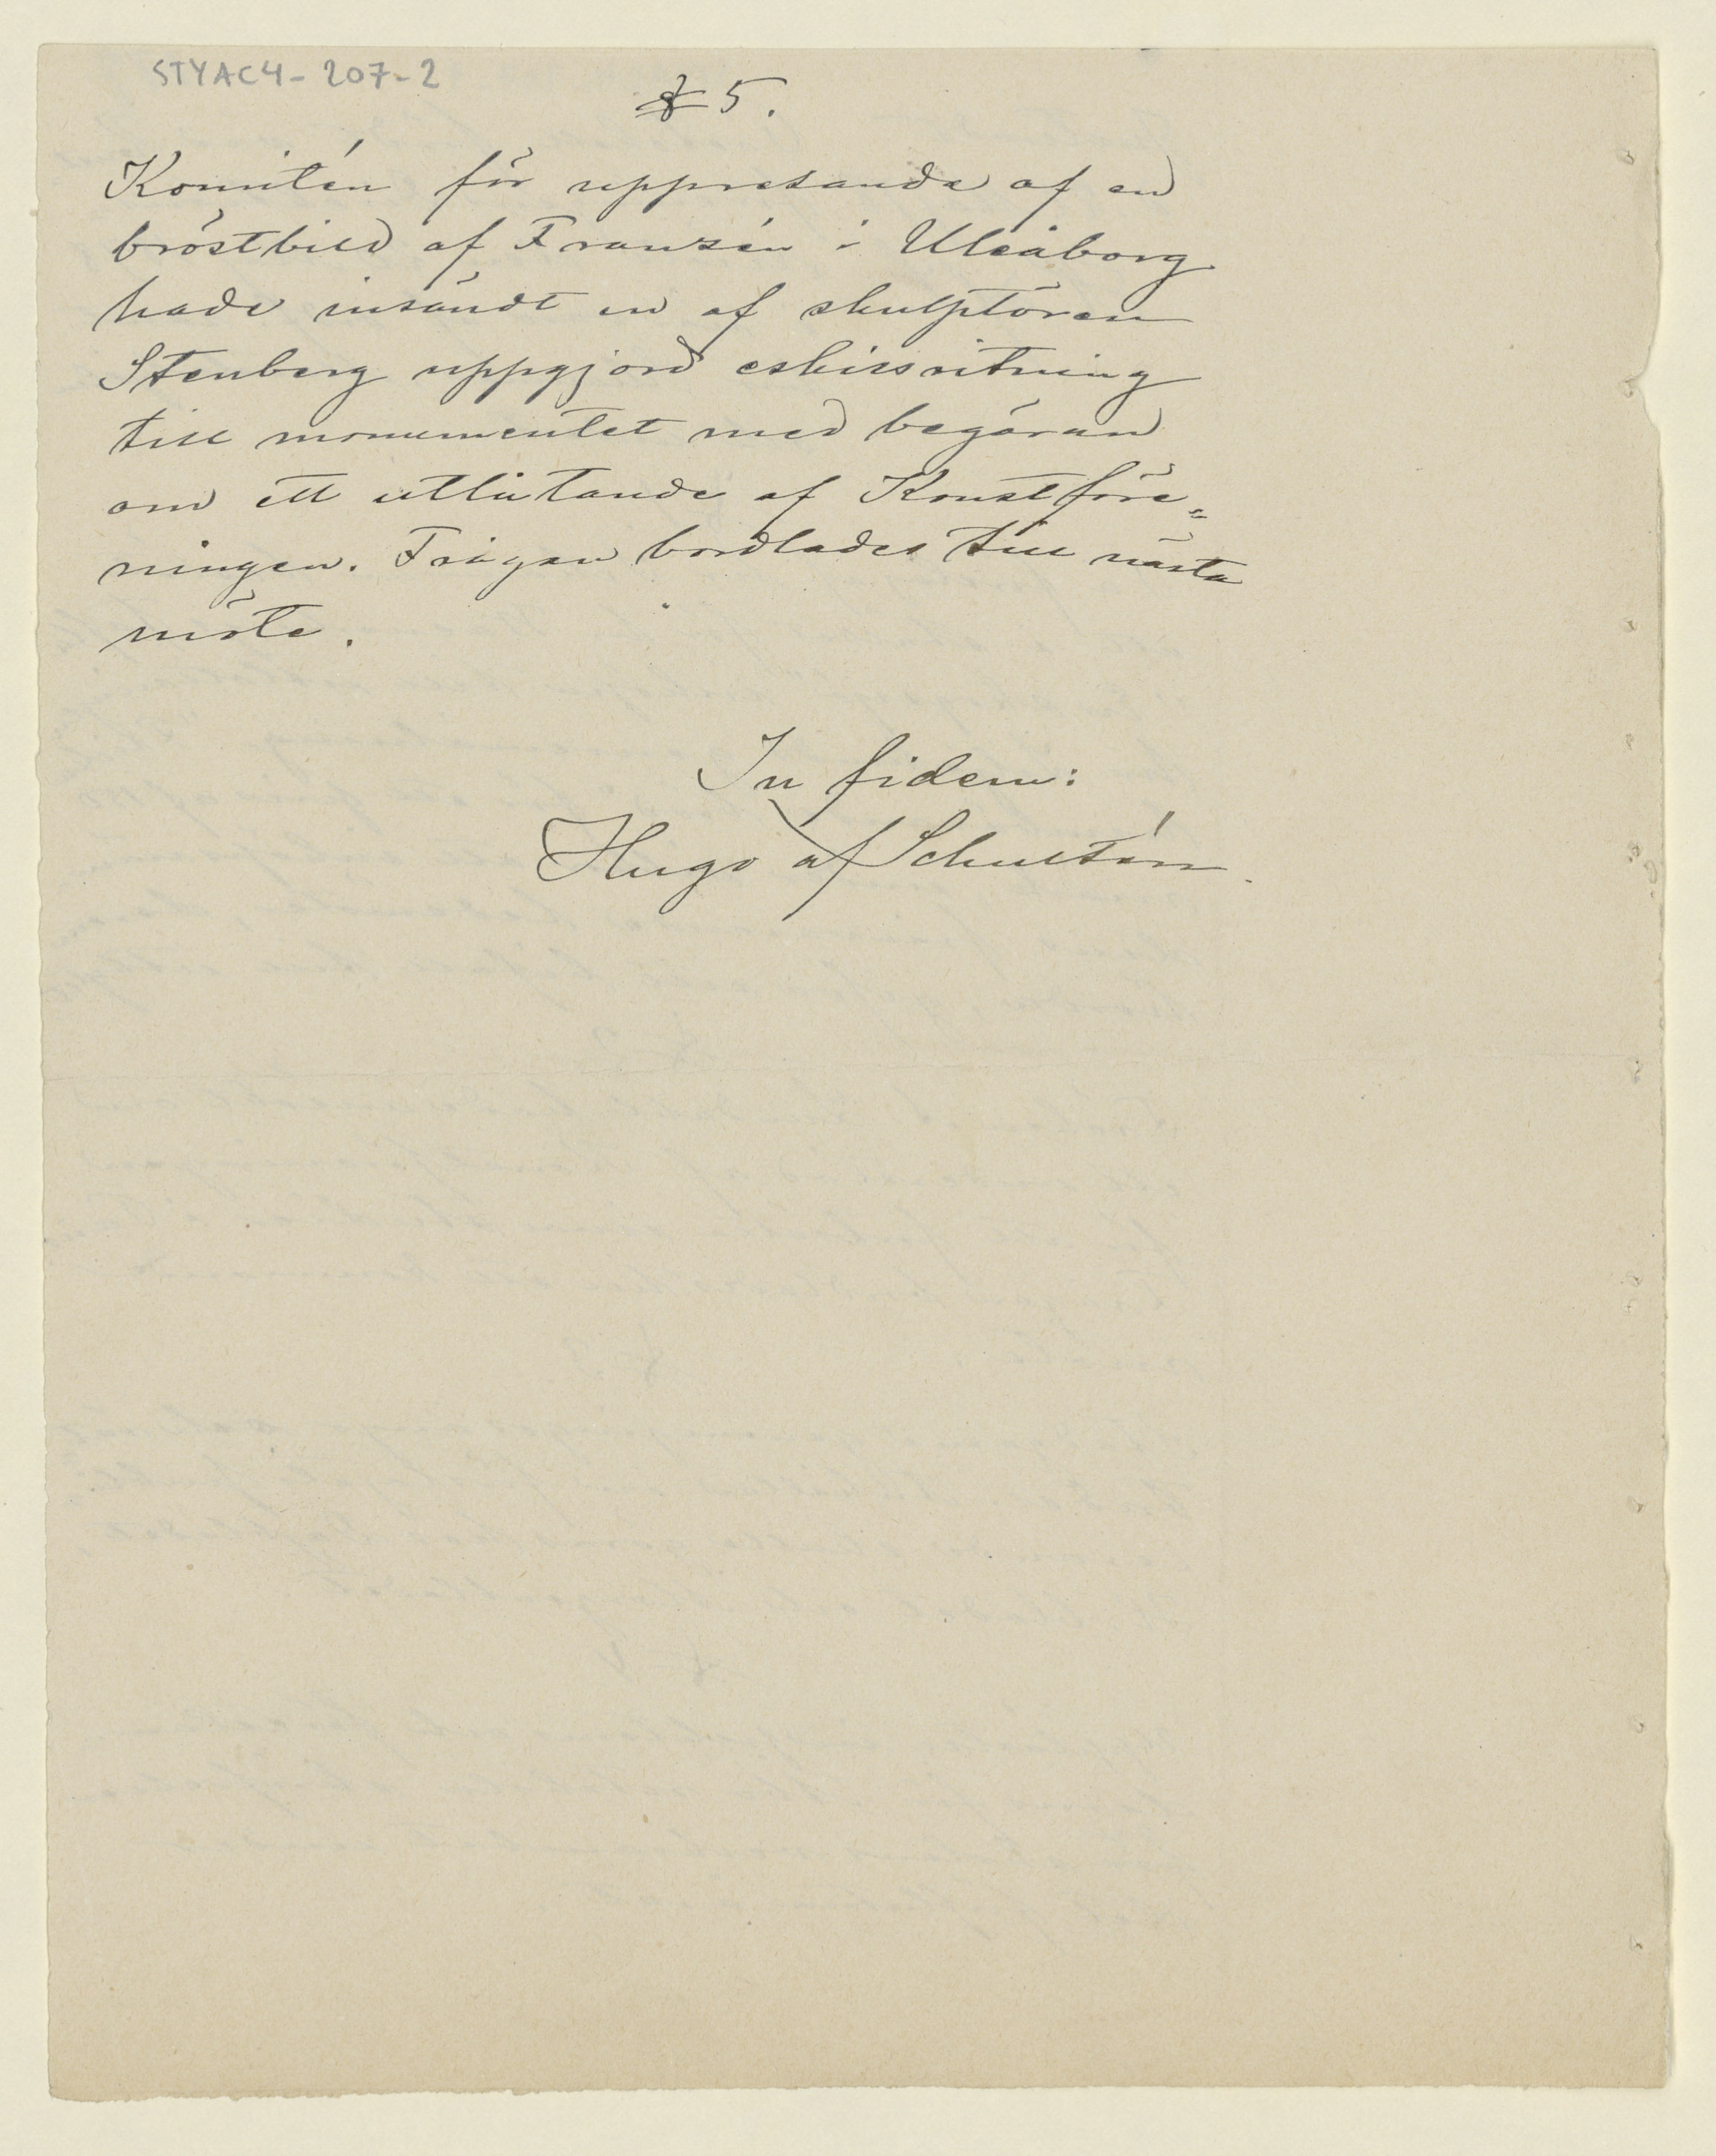 STYAC4-207-2
§ 5.
Komitén för uppresande af en
bröstbild af Franzén i Uleåborg
hade insändt en af skulptören
Stenberg uppgjord eskissritning
till monumentet med begäran
om ett utlåtande af Konstföre=
ningen. Frågan bordlades till nästa
möte.
In fidem:
Hugo af Schultén.